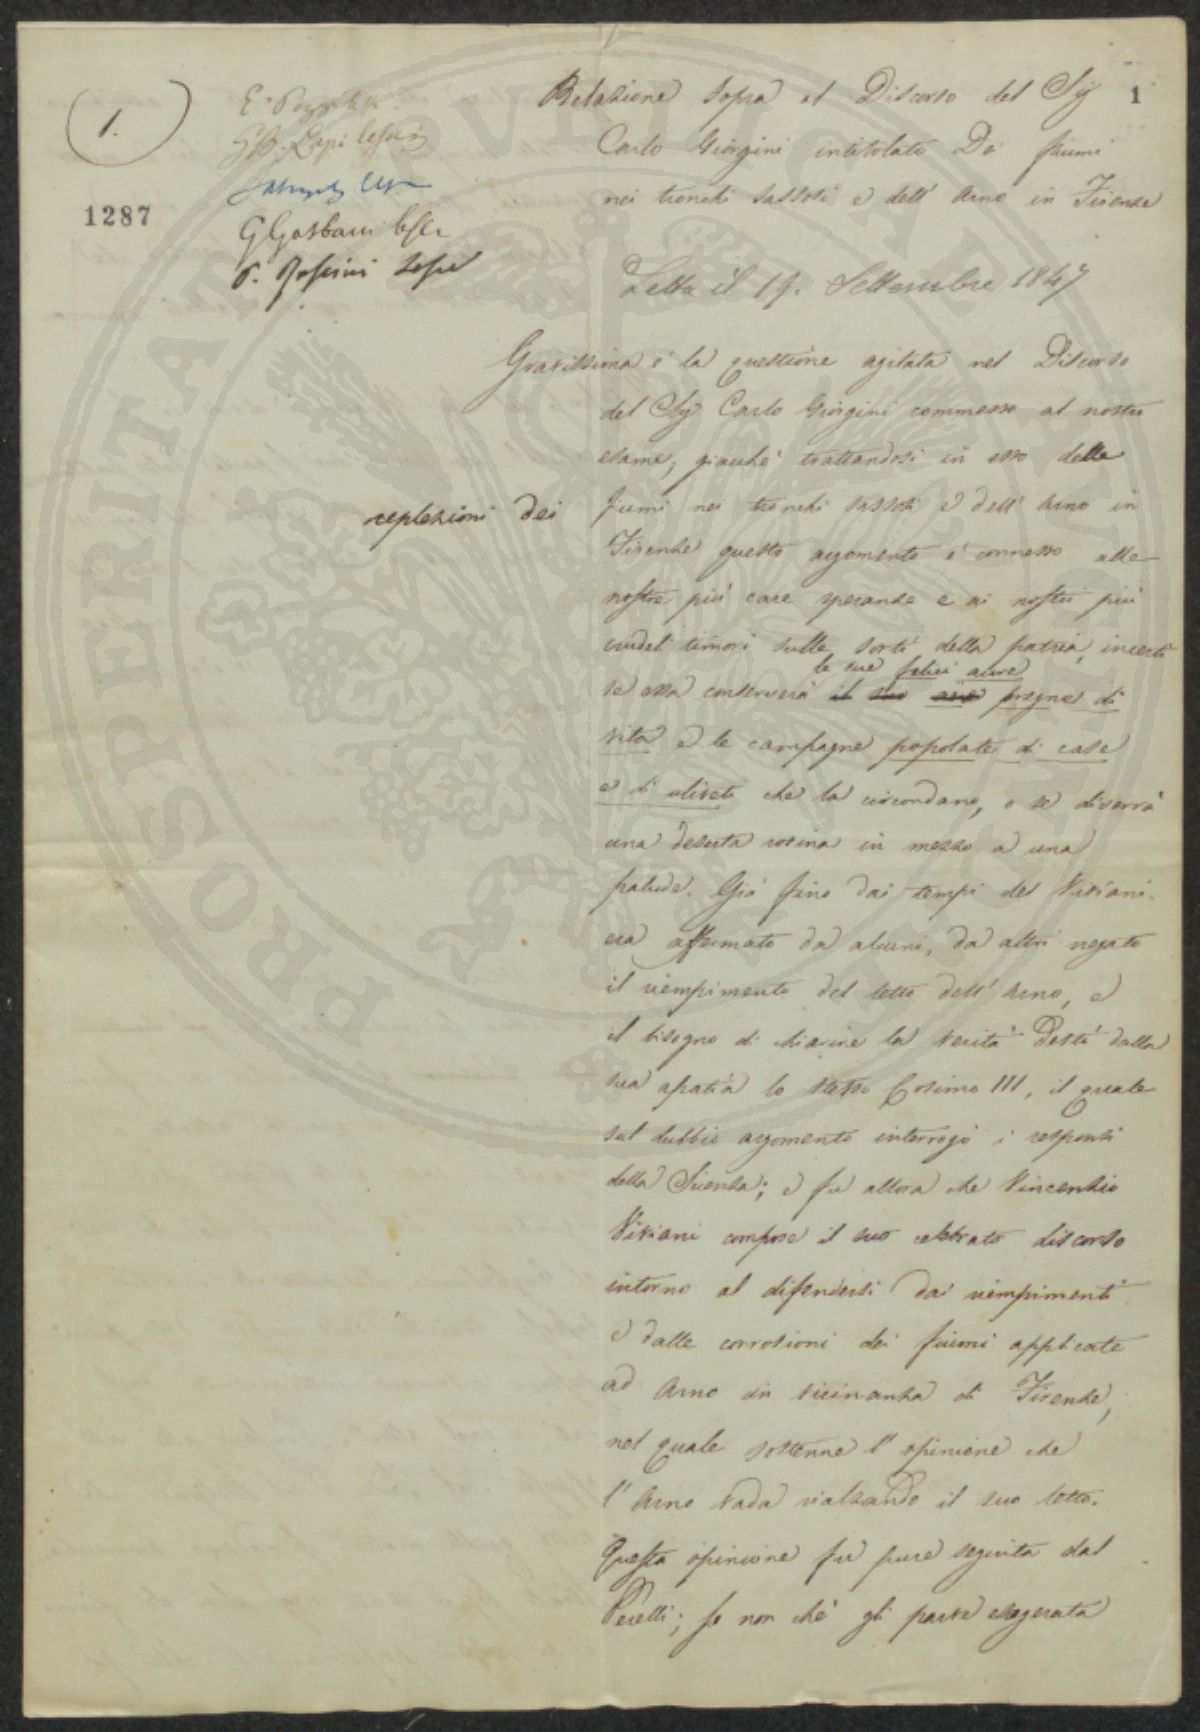 1.
1287
E. Poggi
G.B. Lapi
G Gasbarri
Relazione sopra el Discorso del Sig 1
Carlo Giorgini intitolato Dei fiumi
nei tronchi sassosi e dell' Arno in Firenze
Letta il 19. Settembre 1847
Gravissima è la questione agitata nel Discorso
del Sig Carlo Giorgini commesso al nostro
esame, giacchè trattandosi in esso delle
replezioni dei fiumi nei tronchi sassosi e dell' Arno in
Firenze questo argomento è connesso alle
nostre più care speranze e ai nostri più
crudeli timori sulle sorti della patria, incerti
le sue felici aure
se essa conserverà il suo aere pregne di
vita e le campagne popolate di case
e di uliveti che la circondano, o se diverrà
una deserta rovina in mezzo a una
palude. Già fino dai tempi del Viviani
era affermato da alcuni, da altri negato
il riempimento del letto dell' Arno, e
il bisogno di chiarire la verità destò dalla
sua apatia lo stesso Cosimo III, il quale
sul dubbio argomento interrogò i responsi
della Scienza; e fu allora che Vincenzio
Viviani compose il suo celebrato discorso
intorno al difendersi dai riempimenti
e dalle corrosioni dei fiumi applicate
ad Arno in vicinanza di Firenze,
nel quale sostenne l' opinione che
l' Arno vada rialzando il suo letto.
Questa opinione fu pure seguita dal
Perelli; se non chè gli parve esagerata
PROSPERITATI PVBLICAE